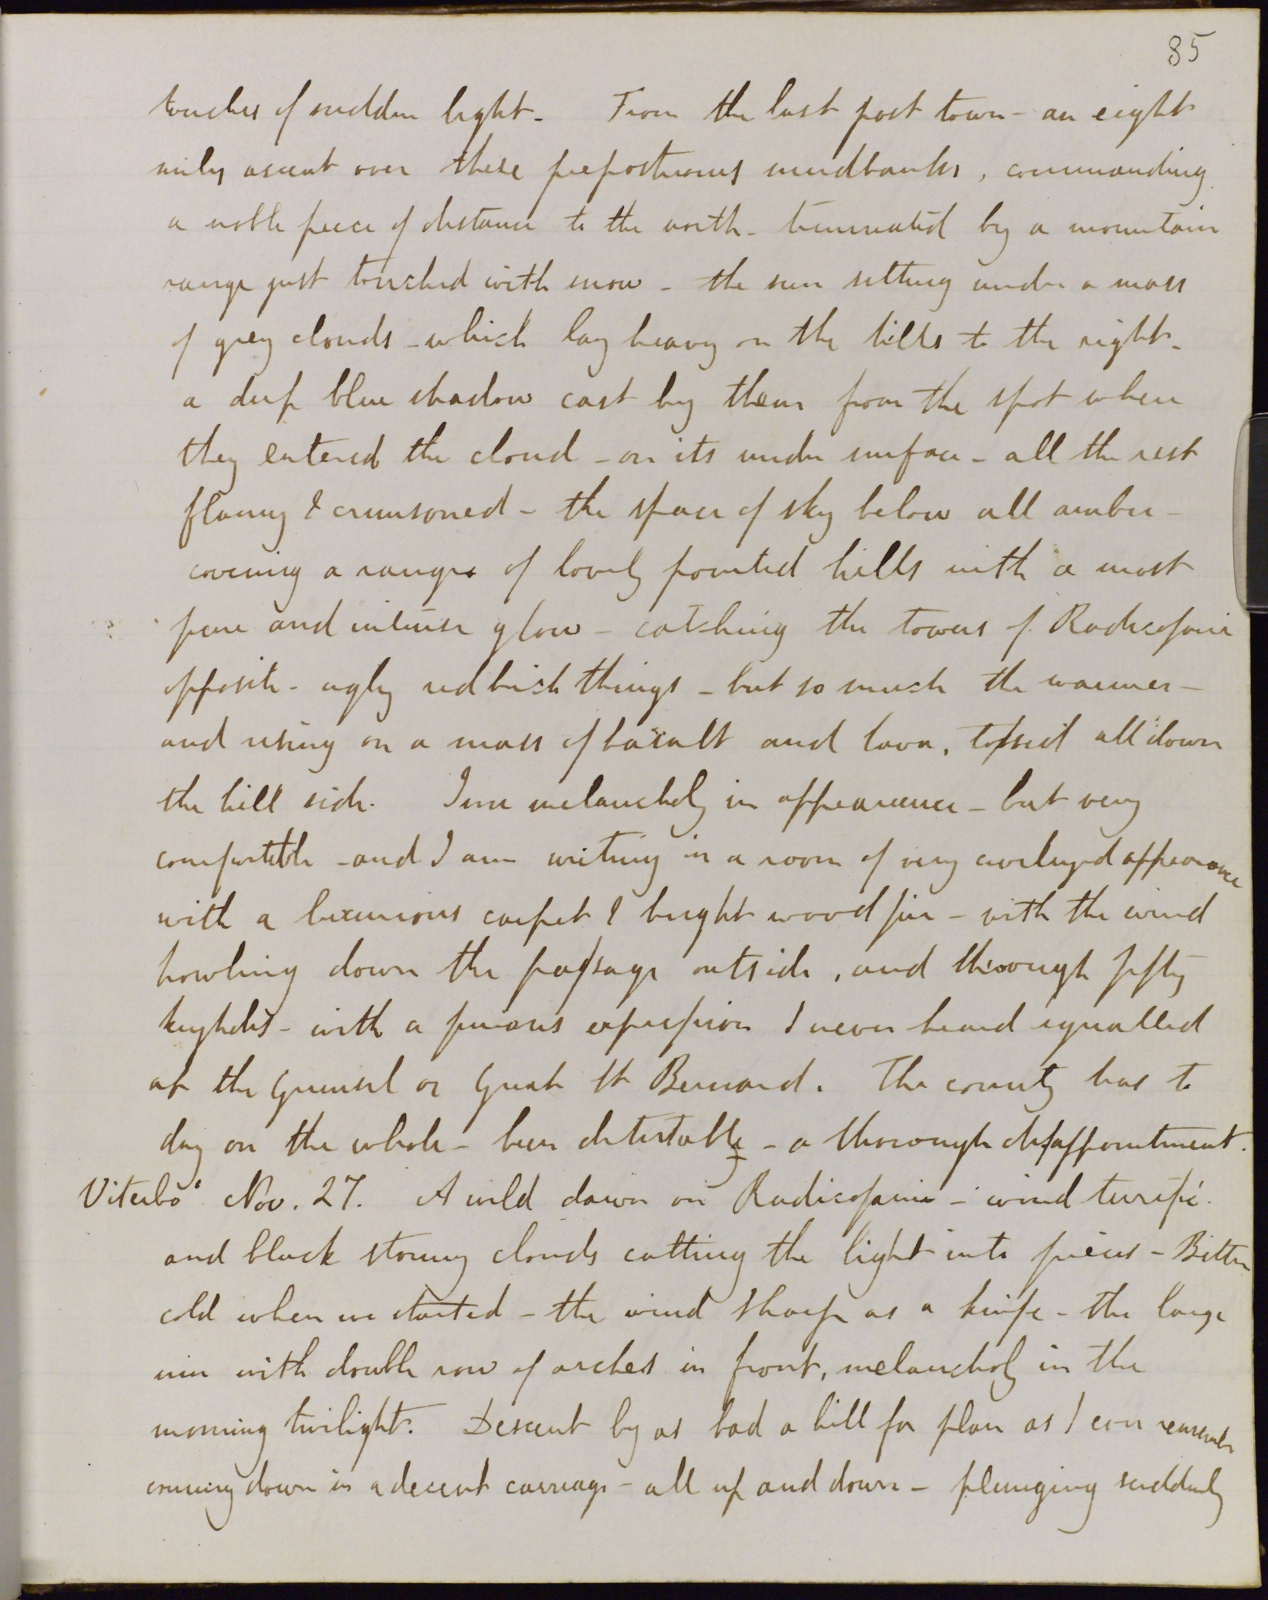 85
touches of sudden light. From the last post town - an eight
miles ascent over these preposterous mudbanks, commanding
a noble piece of distance to the north - terminated by a mountain
range just touched with snow - the sun setting under a mass
of grey clouds - which lay heavy on the hills to the right -
a deep blue shadow cast by them from the spot where
they entered the cloud - on its under surface - all the rest
flamy & crimsoned - the space of sky below all amber -
covering a range of lovely pointed hills with a most
pure and intense glow - catching the towers of Radicofani
opposite - ugly red brick things - but so much the warmer -
and rising on a mass of basalt and lava, tossed all down
the hill side. Inn melancholy in appearance - but very
comfortable - and I am writing in a room of very civilized appearance
with a luxurious carpet & bright wood fire - with the wind
howling down the passage outside, and through fifty
keyholes - with a furious expression I never heard equalled
at the Grimsel or Great St Bernard. The country has to
day on the whole - been detestable - a thorough disappointment.
Viterbo. Nov. 27. A wild dawn on Radicofani - wind terrific
and black stormy clouds cutting the light into pieces - Bitter
cold when we started - the wind sharp as a knife - the large
inn with double row of arches in front, melancholy in the
morning twilight. Descent by as bad a hill for plan as I ever remember
coming down in a decent carriage - all up and down - plunging suddenly